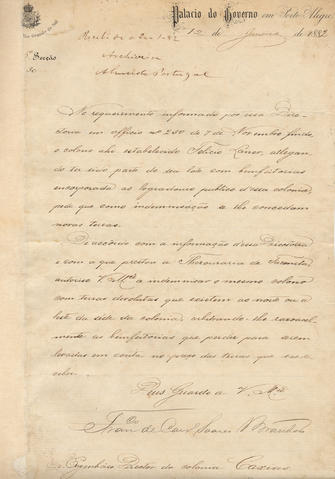 Palacio do Governo em Porto Alegre
12 de Janeiro de 1882
Secção
Archive-se
Almeida Portugal
No requerimento informado por essa Dire-
ctoria em officio nº 280 de 7 de Novembro findo,
o colono ahi estabelecido Felicio Laner, allegan-
do ter sido parte do seu lote com bemfeitorias
encorporada ao logradouro publico d'essa colonia,
pede que como indemnisação se lhe concedam
novas terras.
De accôrdo com a informação d'essa Directoria
e com a que prestou a Thesouraria de Fazenda,
autoriso V. Mce. a indemnisar o mesmo colono
com terras devolutas que existem ao norte ou a
leste da séde da colonia, arbitrando-lhe rasoavel-
mente as bemfeitorias que perder para serem
levadas em conta no preço das terras que rece-
ber.
Deus Guarde a V. Mce.
Soares Brandão
Director da colonia Caxias